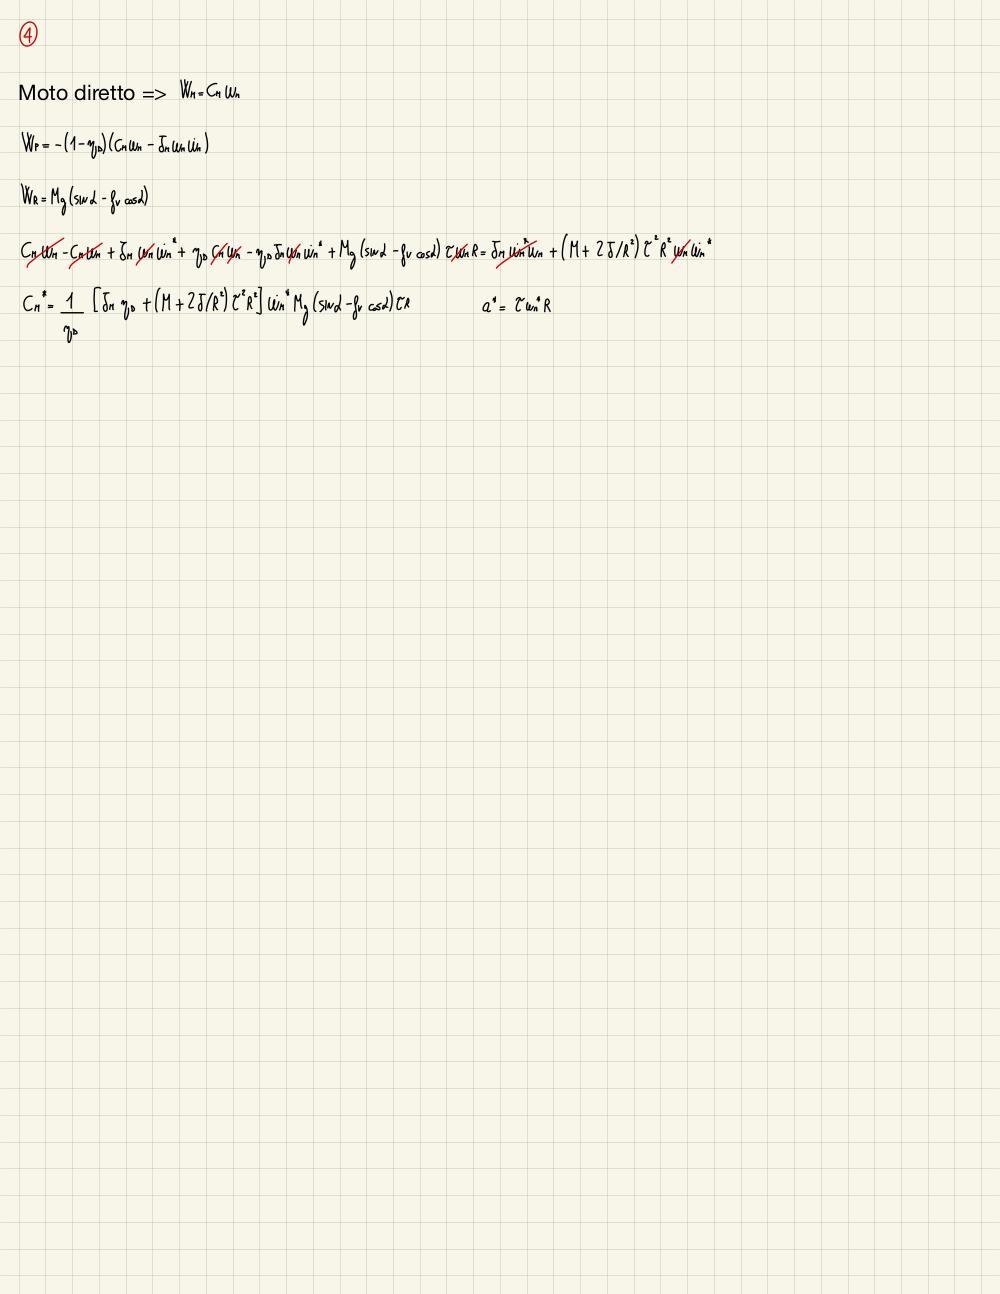 4
Moto diretto => W_M = C_M ω_M
W_P = -(1-η_D)(C_M ω_M - J_M ω_M ω̇_M)
W_R = Mg(sin α - f_v cos α)
C_M ω_M - C_M ω_M + J_M ω_M ω̇_M* + η_D C_M ω_M - η_D J_M ω_M ω̇_M* + Mg(sin α - f_v cos α) τ ω_M R = J_M ω̇_M* ω_M + (M + 2J/R²) τ² R² ω_M ω̇_M*
C_M* = 1/η_D [J_M η_D + (M + 2J/R²) τ² R²] ω̇_M* Mg(sin α - f_v cos α) τ R a* = τ ω̇_M* R